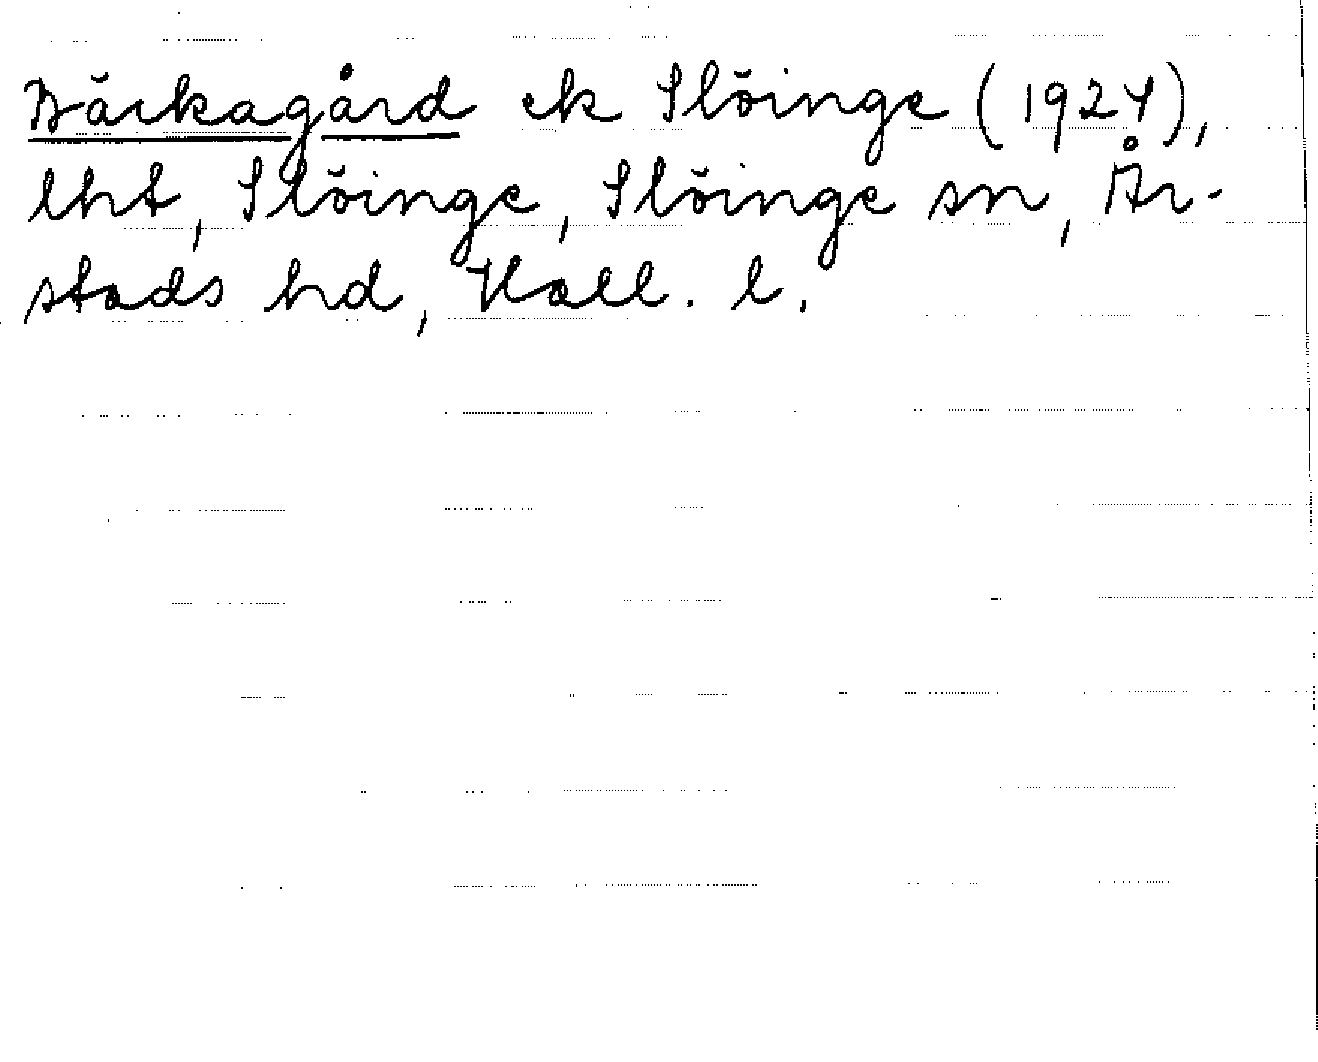 Bäckagård ek Slöinge (1924),
lht, Slöinge, Slöinge sn, År-
stads hd, Hall. l.